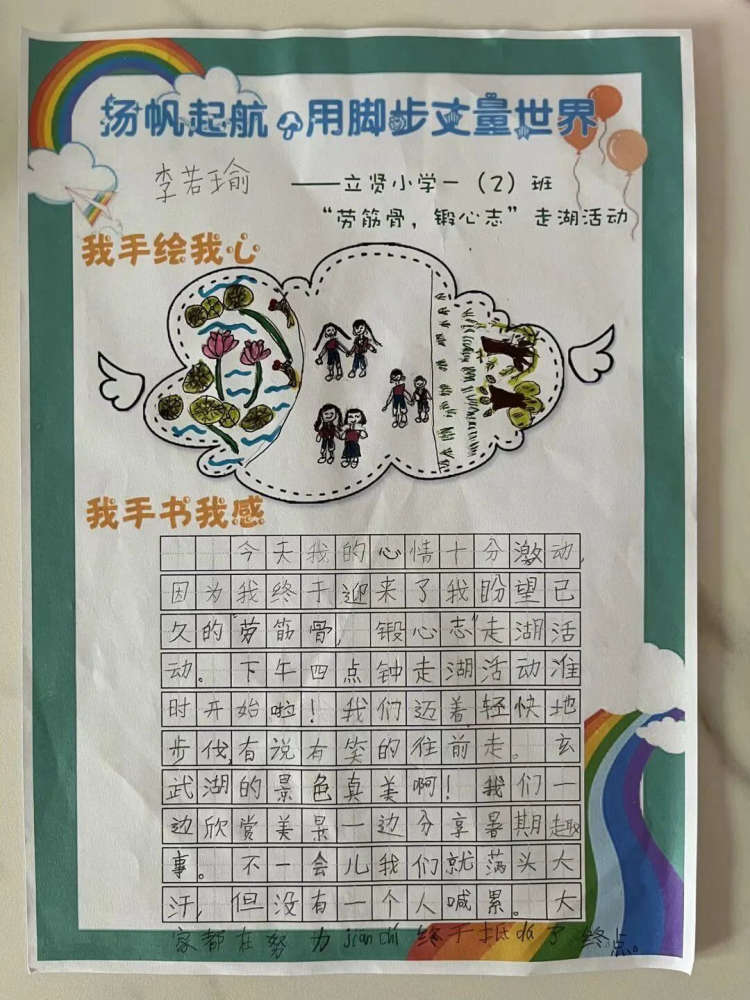 扬帆起航，用脚步丈量世界
李若瑜 ——立贤小学一（2）班
“劳筋骨，锻心志”走湖活动
我手绘我心
我手书我感
今天我的心情十分激动，
因为我终于迎来了我盼望已
久的“劳筋骨，锻心志”走湖活
动。下午四点钟走湖活动准
时开始啦！我们迈着轻快地
步伐，有说有笑的往前走。玄
武湖的景色真美啊！我们一
边欣赏美景一边分享暑期趣
事。不一会儿我们就满头大
汗，但没有一个人喊累。大
家都在努力jian chi 终于抵da了终点。